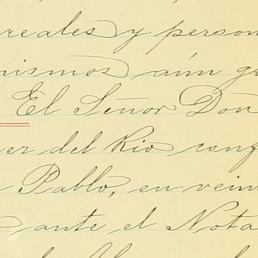 reales y person
mismos aún gr
El Señor Don
er del Rio cong
Pablo, en vein
ante el Nota